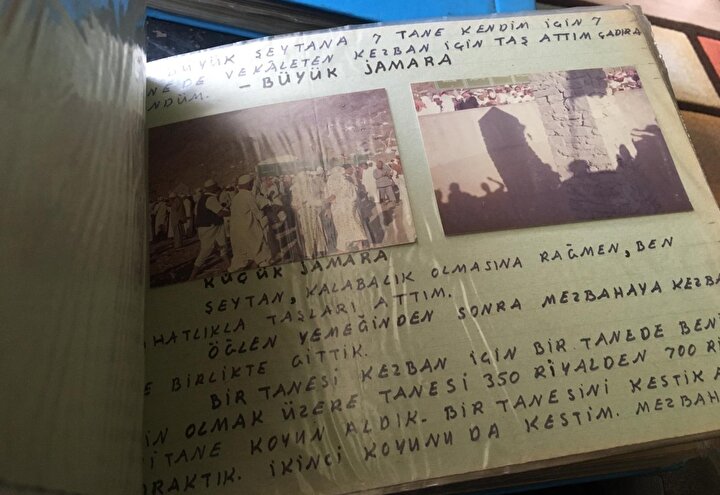 BÜYÜK ŞEYTANA 7 TANE KENDİM İÇİN 7
NE DE VEKÂLETEN KEZBAN İÇİN TAŞ ATTIM ÇADIRA
NDÜM. — BÜYÜK JAMARA
KÜÇÜK JAMARA
ŞEYTAN, KALABALIK OLMASINA RAĞMEN, BEN
HATLIKLA TAŞLARI ATTIM.
ÖĞLEN YEMEĞİNDEN SONRA MEZBAHAYA KEZBA
E BİRLİKTE GİTTİK.
BİR TANESİ KEZBAN İÇİN BİR TANEDE BENİ
İN OLMAK ÜZERE TANESİ 350 RİYALDEN 700 Rİ
İ TANE KOYUN ALDIK. BİR TANESİNİ KESTİK
RAKTIK. İKİNCİ KOYUNU DA KESTİM. MEZBAH